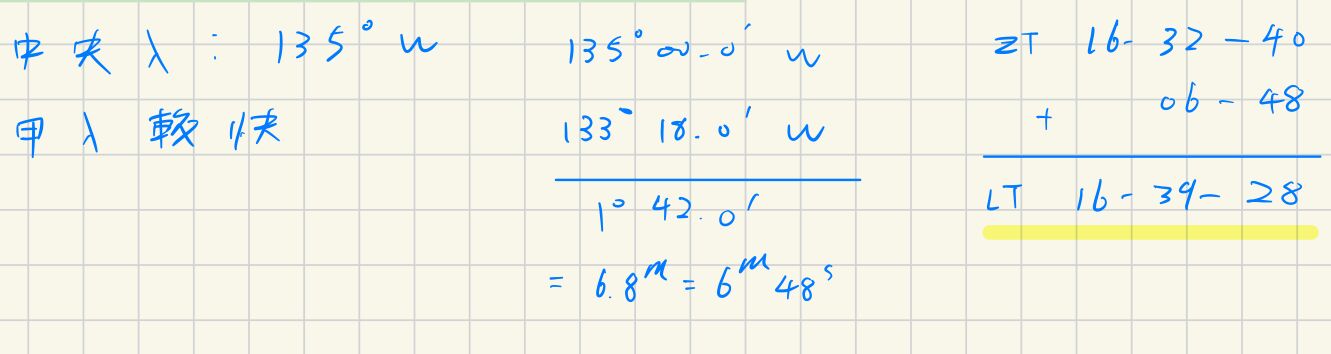 中央λ: 135° W
甲λ較快
135° 00.0' W
133° 18.0' W
1° 42.0'
= 6.8ᵐ = 6ᵐ 48ˢ
ZT 16-32-40
+ 06-48
LT 16-39-28